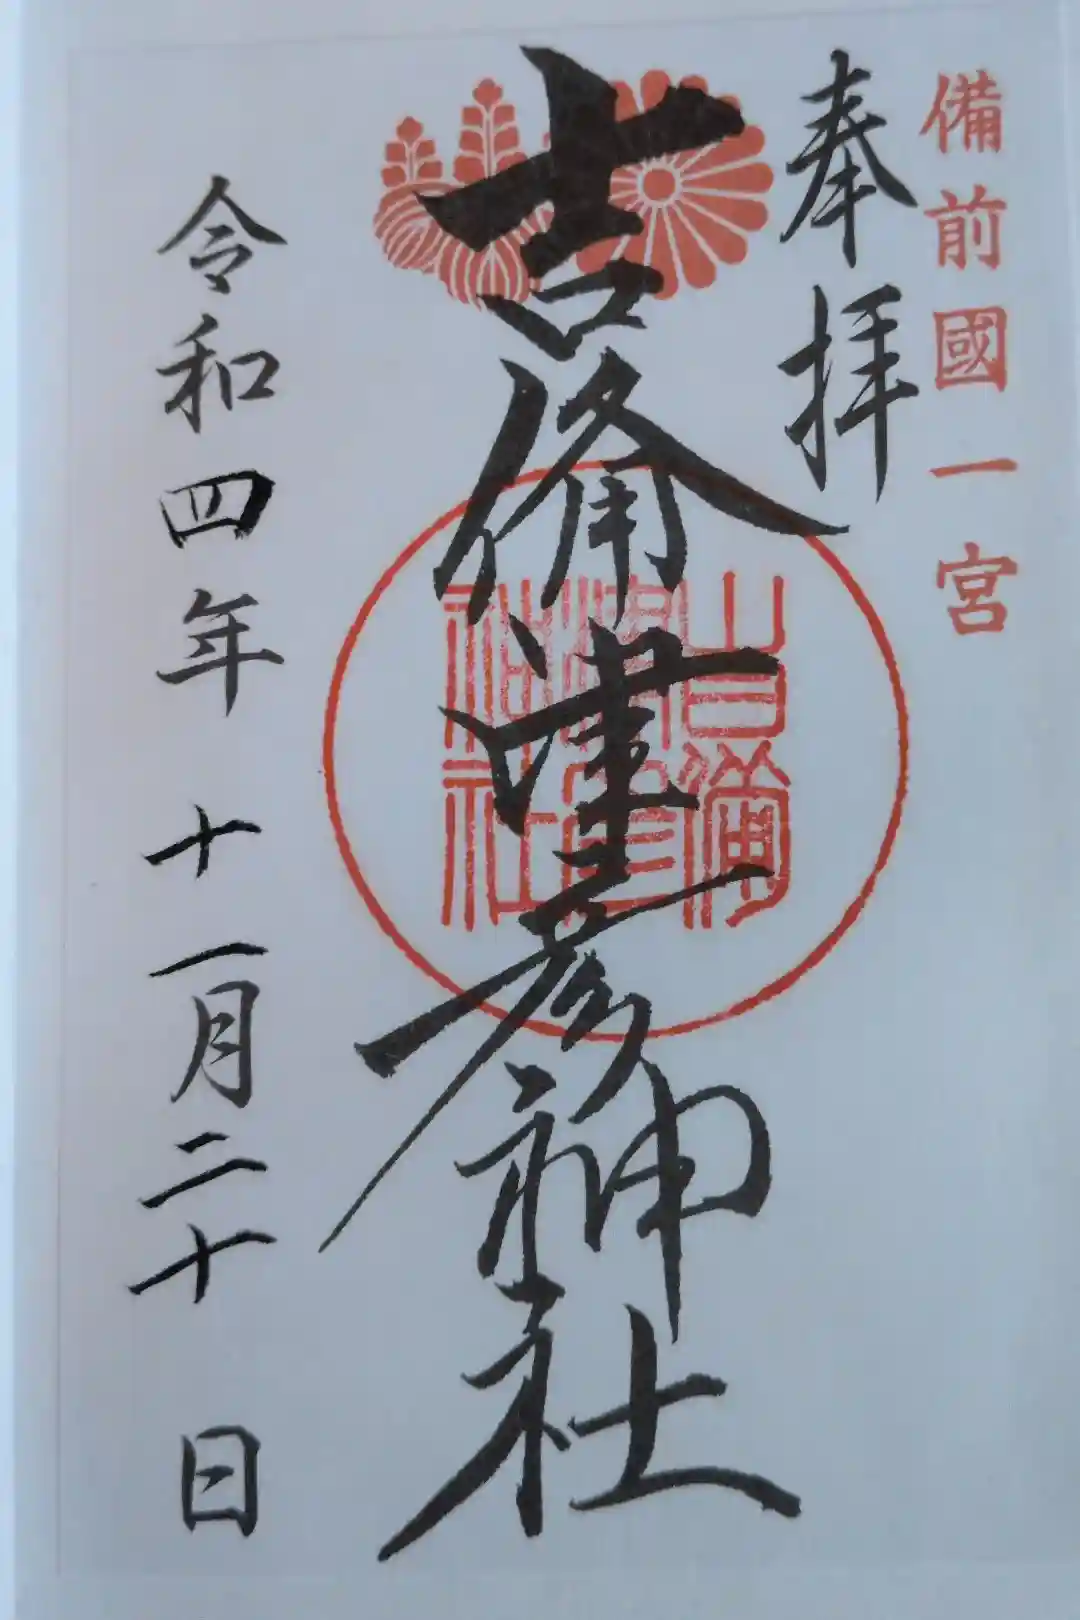 備前國一宮
奉拝
吉備津彦神社
吉備
津彦
神社
令和四年 十一月二十 日